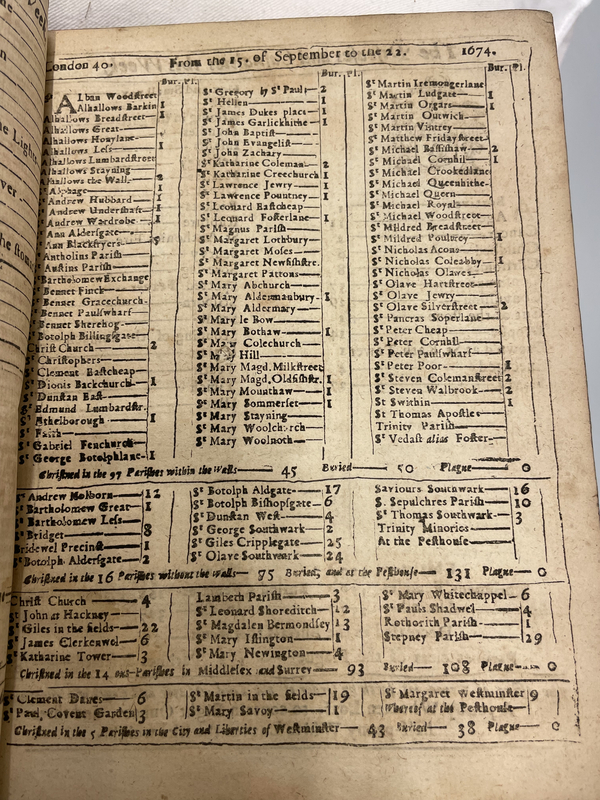 London 40.
From the 15. of September to the 22.
1674.
Bur. Pl.
Alban Woodstreet
Alhallows Barkin 1
Alhallows Breadstreet 1
Alhallows Great
Alhallows Honylane
Alhallows Less 1
Alhallows Lumbardstreet
Alhallows Stayning
Alhallows the Wall 2
Alphage 1
Andrew Hubbard 1
Andrew Undershaft 1
Andrew Wardrobe 1
Ann Aldersgate
Ann Blackfryers 5
Antholins Parish
Austins Parish
Bartholomew Exchange
Bennet Finck
Bennet Gracechurch
Bennet Paulswharf
Bennet Sherehog
Botolph Billingsgate
Christ Church 2
St Christophers
St Clement Eastcheap
St Dionis Backchurch 1
St Dunstan East
St Edmund Lumbardstr.
St Ethelborough 1
St Faith
St Gabriel Fenchurch
St George Botolphlane 1
Bur. Pl.
St Gregory by St Pauls 2
St Hellen 1
St James Dukes place 1
St James Garlickhithe 1
St John Baptist
St John Evangelist
St John Zachary
St Katharine Coleman 2
St Katharine Creechurch 1
St Lawrence Jewry 1
St Lawrence Pountney 1
St Leonard Eastcheap
St Leonard Fosterlane 1
St Magnus Parish
St Margaret Lothbury
St Margaret Moses
St Margaret Newfishstre.
St Margaret Pattons
St Mary Abchurch
St Mary Aldermanbury 1
St Mary Aldermary
St Mary le Row
St Mary Bothaw 1
St Mary Colechurch
St Mary Hill
St Mary Magd. Milkstreet
St Mary Magd. Oldfishstr. 1
St Mary Mounthaw 1
St Mary Sommerset 1
St Mary Stayning
St Mary Woolchurch
St Mary Woolnoth
Bur. Pl.
St Martin Iremongerlane
St Martin Ludgate 1
St Martin Orgars 1
St Martin Outwich
St Martin Vintrey
St Matthew Fridaystreet
St Michael Bassishaw 2
St Michael Cornhil 1
St Michael Crookedlane
St Michael Queenhithe
St Michael Quern
St Michael Royal
St Michael Woodstreet
St Mildred Breadstreet
St Mildred Poultrey 1
St Nicholas Acons
St Nicholas Coleabby 1
St Nicholas Olaves
St Olave Hartstreet
St Olave Jewry
St Olave Silverstreet 2
St Pancras Soperlane
St Peter Cheap
St Peter Cornhil
St Peter Paulswharf
St Peter Poor 1
St Steven Colemanstreet 2
St Steven Walbrook 2
St Swithin 1
St Thomas Apostles
Trinity Parish
St Vedast alias Foster
Christned in the 97 Parishes within the Walls 45 Buried 50 Plague 0
St Andrew Holborn 12
St Bartholomew Great 1
St Bartholomew Less 1
St Bridget 8
Bridewel Precinct 1
St Botolph Aldersgate 2
St Botolph Aldgate 17
St Botolph Bishopsgate 6
St Dunstan West 4
St George Southwark 2
St Giles Cripplegate 25
St Olave Southwark 24
Saviours Southwark 16
S. Sepulchres Parish 10
St Thomas Southwark 3
Trinity Minories
At the Pesthouse
Christned in the 16 Parishes without the Walls 75 Buried, and at the Pesthouse 131 Plague 0
Christ Church 4
St John at Hackney
St Giles in the fields 22
St James Clerkenwel 6
St Katharine Tower 3
Lambeth Parish 3
St Leonard Shoreditch 12
St Magdalen Bermondsey 13
St Mary Islington 1
St Mary Newington 4
St Mary Whitechappel 6
St Pauls Shadwel 4
Rothorith Parish 1
Stepney Parish 29
Christned in the 14 out-Parishes in Middlesex and Surrey 93 Buried 108 Plague 0
St Clement Danes 6
St Paul Covent Garden 3
St Martin in the fields 19
St Mary Savoy 1
St Margaret Westminster 9
Whereof at the Pesthouse
Christned in the 5 Parishes in the City and Liberties of Westminster 43 Buried 38 Plague 0